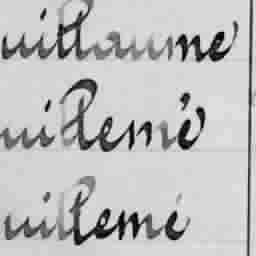 uillaume
uillemé
uillemé